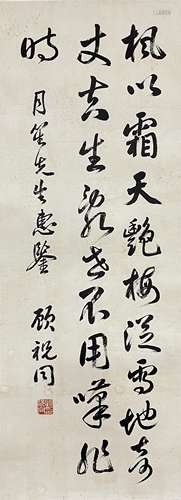 楓以霜天艷梅從雪地奇
丈夫生亂世不用嘆非
時
月笙先生惠鑒 顧祝同